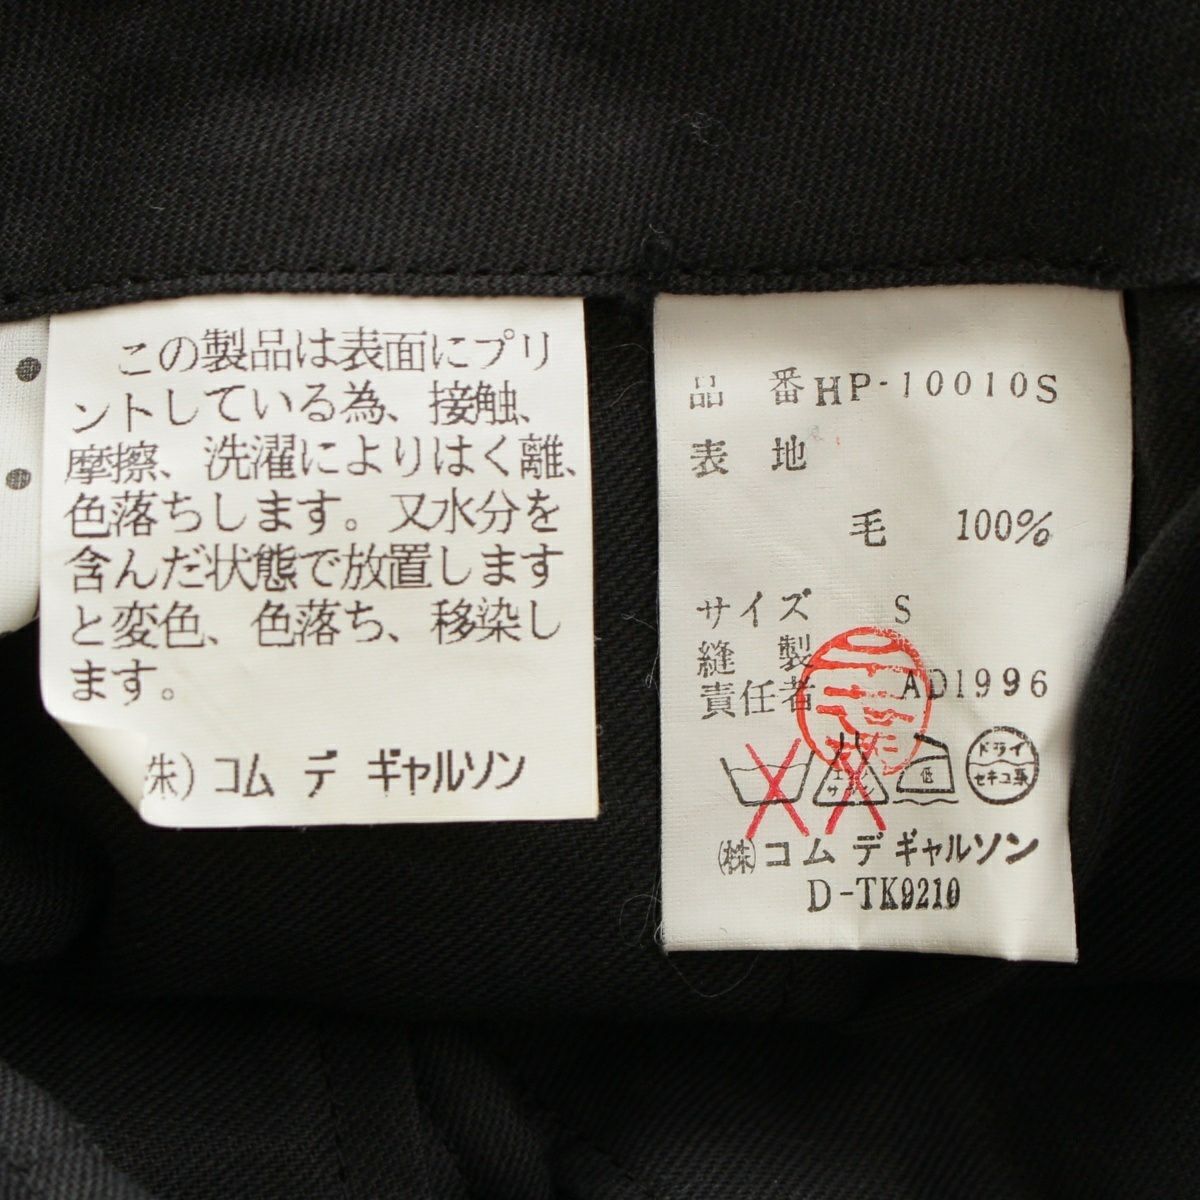 この製品は表面にプリ
ントしている為、接触、
摩擦、洗濯によりはく離、
色落ちします。又水分を
含んだ状態で放置します
と変色、色落ち、移染し
ます。
株）コム デ ギャルソン
品 番 HP-10010S
表 地
毛 100%
サイズ S
縫 製
責任者 AD1996
エンソ
サラシ
低
ドライ
セキユ系
㈱コム デ ギャルソン
D-TK9210